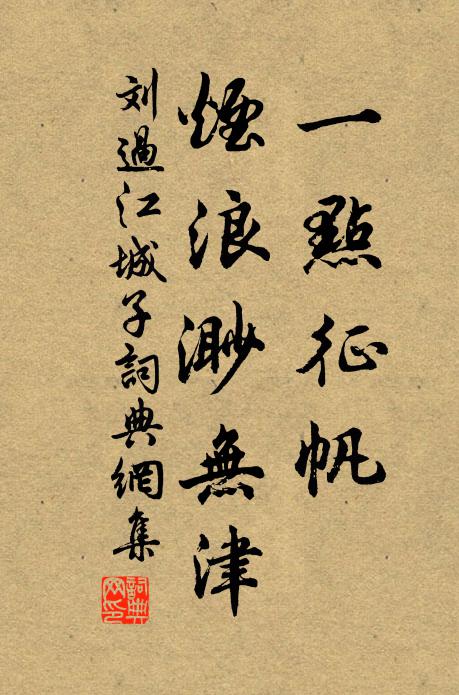 一點征帆
煙浪渺無津
刘過江城子詞典網集
詞典网印